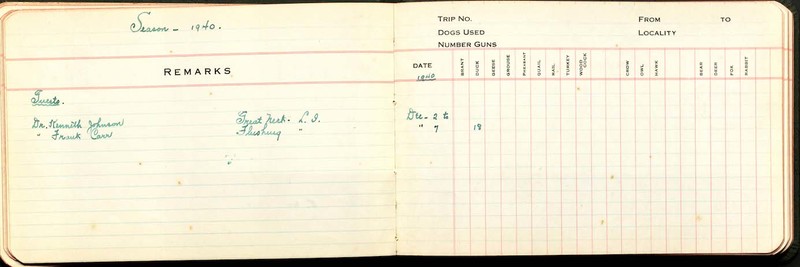 Season - 1940.
REMARKS
Guests.
Dr. Kennith Johnson Great Neck - L. I.
" Frank Carr Flushing "
TRIP NO. FROM TO
DOGS USED LOCALITY
NUMBER GUNS
DATE BRANT DUCK GEESE GROUSE PHEASANT QUAIL RAIL TURKEY WOOD COCK CROW OWL HAWK BEAR DEER FOX RABBIT
1940
Dec - 2 to
" 7 18